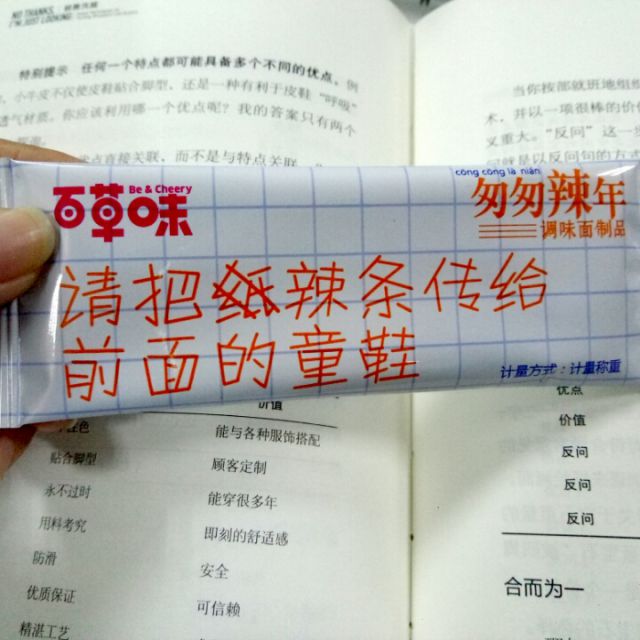 NO THANKS,
I'M JUST LOOKING
特别提示 任何一个特点都可能具备多个不同的优点。例
小牛皮不仅使皮鞋贴合脚型,还是一种有利于皮鞋“呼吸”
透气材质。你应该利用哪一个优点呢?我的答案只有两个
点直接关联,而不是与特点关联
当你按部就班地组织
术,并以一项很棒的价
义重大。“反问”这一
问就是以反问句的方式
百草味
Be & Cheery
cōng cōng là nián
匆匆辣年
调味面制品
请把纸辣条传给
前面的童鞋
计量方式:计量称重
价值
能与各种服饰搭配
贴合脚型 顾客定制
永不过时 能穿很多年
用料考究 即刻的舒适感
防滑 安全
优质保证 可信赖
精湛工艺
优点
价值
反问
反问
反问
合而为一